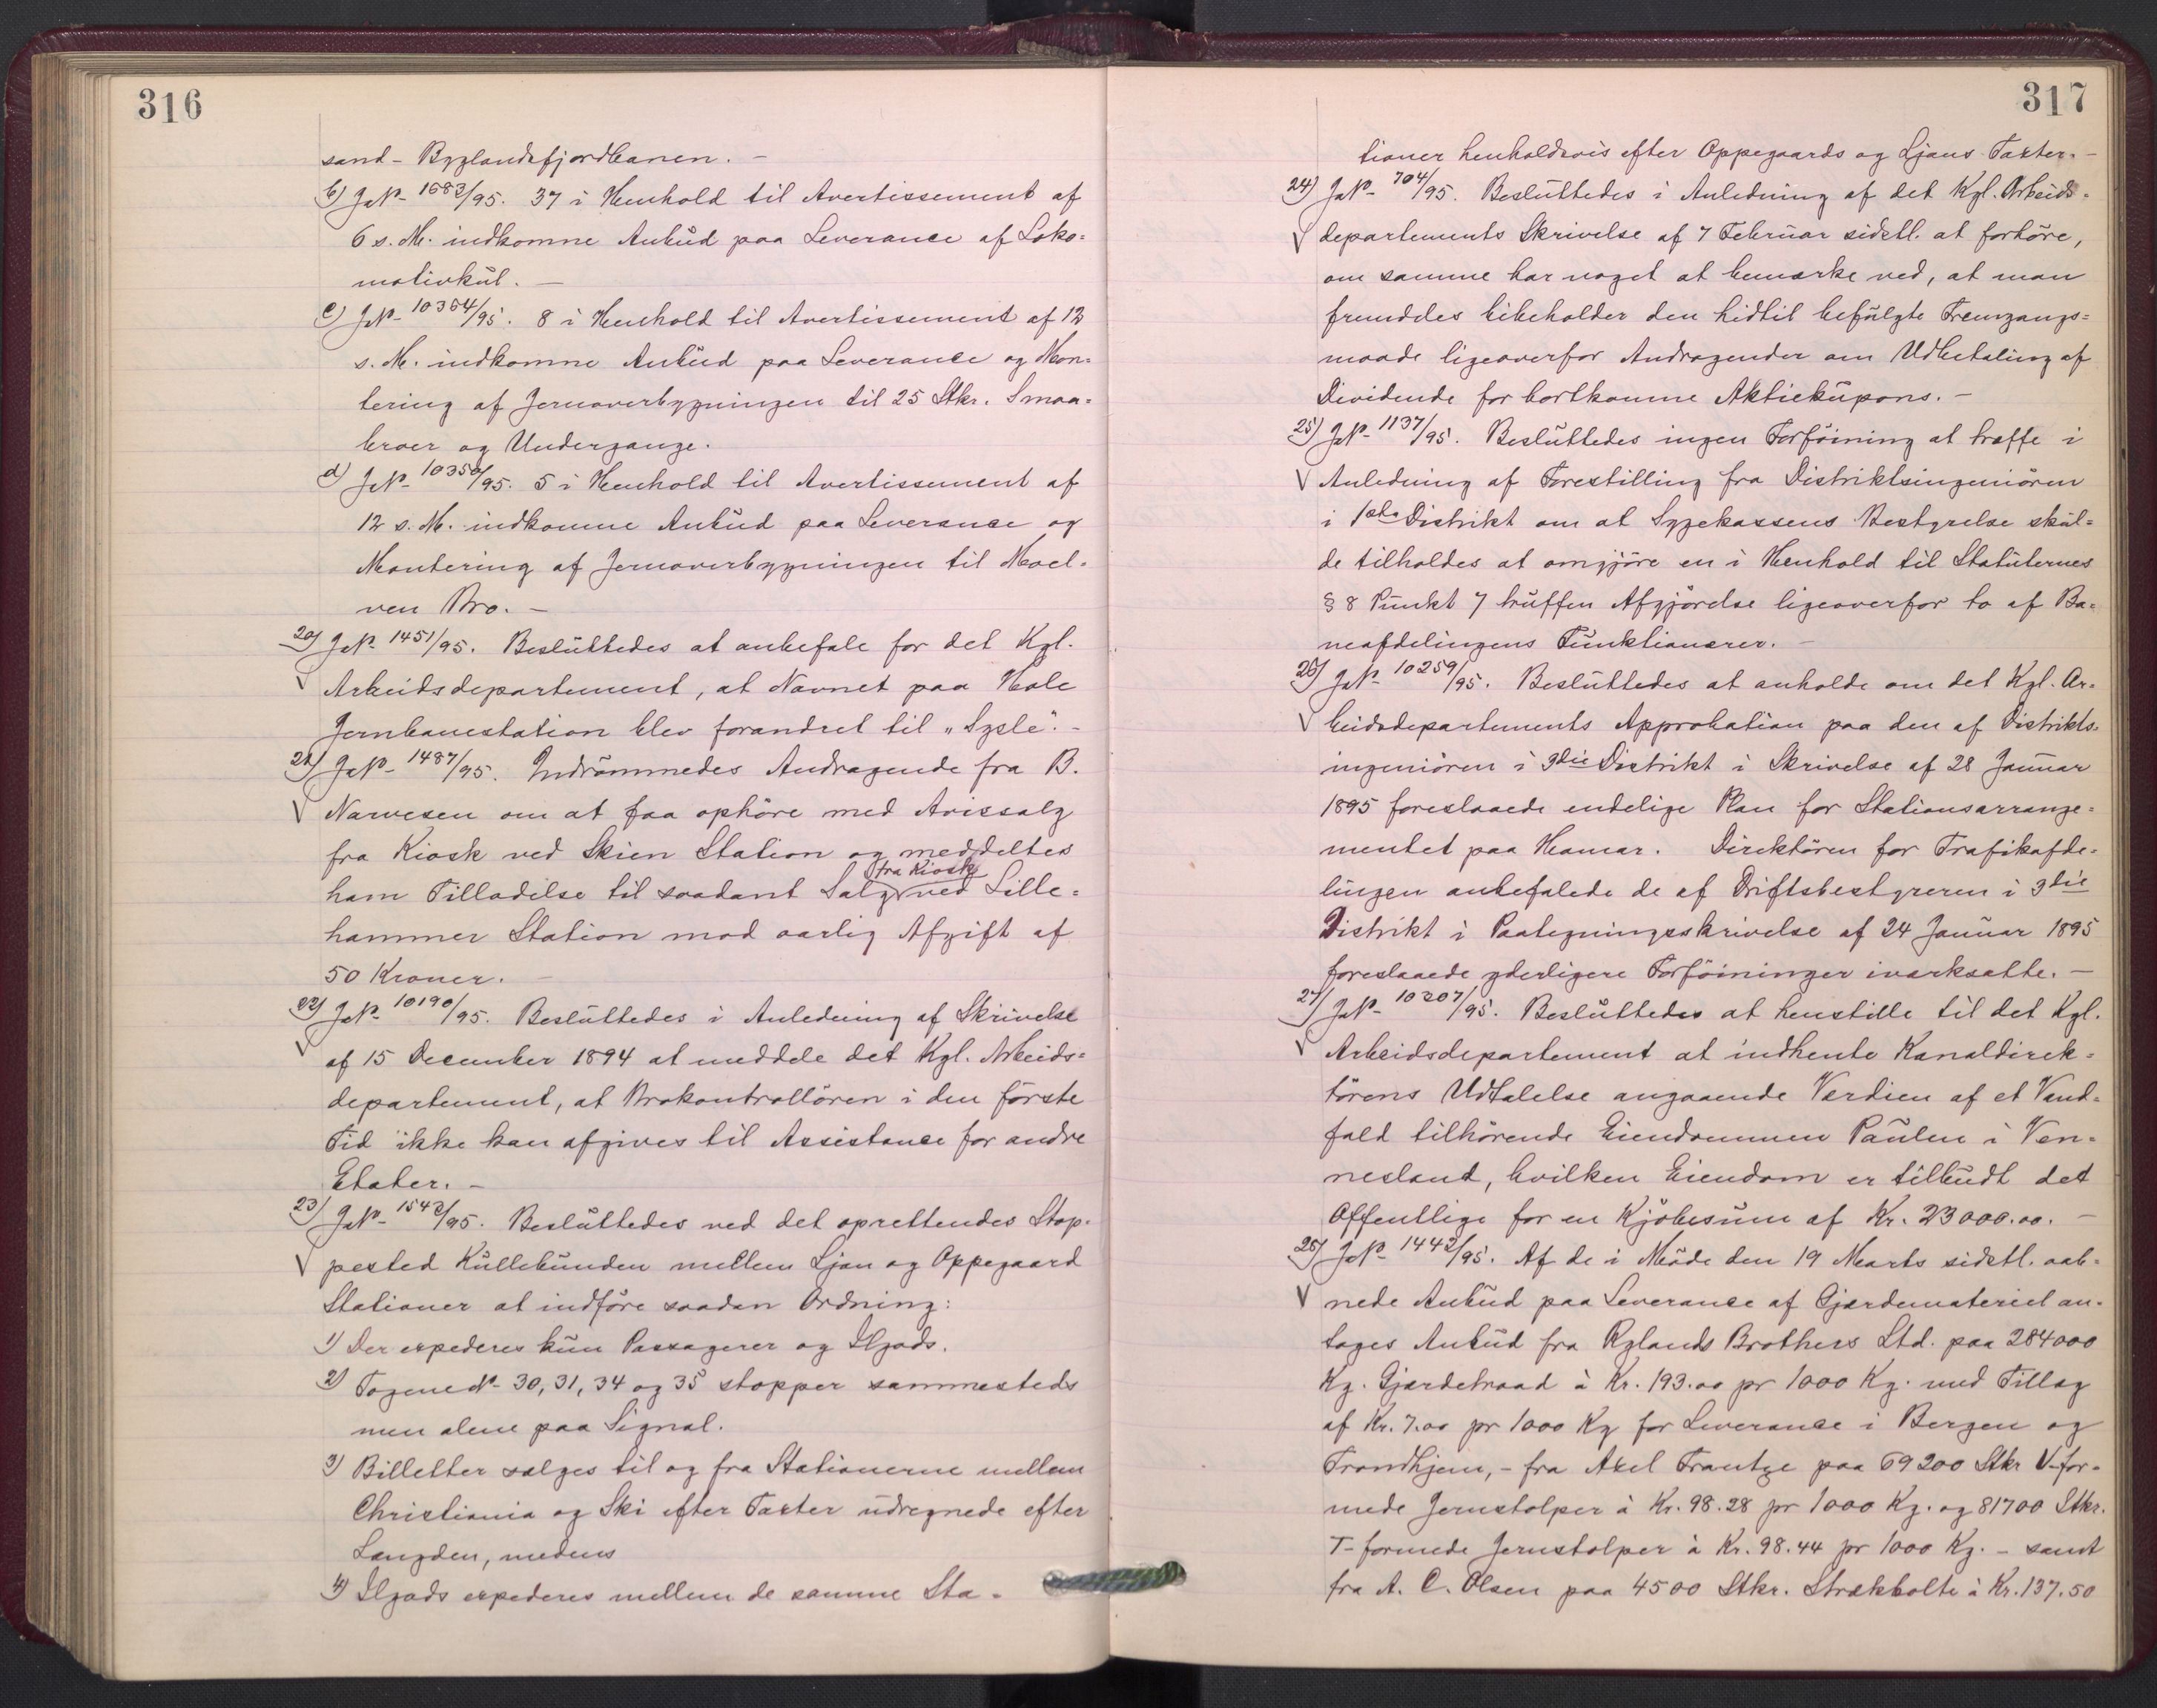 316
sand - Byglandsfjordbanen. -
b) JNo 1683/95. 37 i Henhold til Avertissement af
6 s. M. indkomne Anbud paa Leverance af Loko=
motivkul. -
c) JNo 10364/95. 8 i Henhold til Avertissement af 12
s. M. indkomne Anbud paa Leverance og Mon=
tering af Jernoverbygningen til 25 Stkr. Smaa=
broer og Undergange.
d) JNo 10350/95. 5 i Henhold til Avertissement af
12 s. M. indkomne Anbud paa Leverance og
Montering af Jernoverbygningen til Moel=
ven Bro. -
20) JNo 1451/95. Besluttedes at anbefale for det Kgl.
Arbeidsdepartement, at Navnet paa Hole
Jernbanestation blev forandret til „Sysle". -
21) JNo 1487/95. Indrömmedes Andragende fra B.
Narvesen om at faa ophöre med Avissalg
fra Kiosk ved Skien Station og meddeltes
fra Kiosk
ham Tilladelse til saadant Salg ved Lille=
hammer Station mod aarlig Afgift af
50 Kroner. -
22) JNo 10190/95. Besluttedes i Anledning af Skrivelse
af 15 December 1894 at meddele det Kgl. Arbeids=
departement, at Brokontrollören i den förste
Tid ikke kan afgives til Assistance for andre
Etater. -
23) JNo 1542/95. Besluttedes ved det oprettendes Stop=
pested Kullebunden mellem Ljan og Oppegaard
Stationer at indföre saadan Ordning:
1) Der expederes kun Passagerer og Ilgods.
2) Togene No 30, 31, 34 og 35 stopper sammesteds
men alene paa Signal.
3) Billetter sælges til og fra Stationerne mellem
Christiania og Ski efter Taxter udregnede efter
Længden, medens
4) Ilgods expederes mellem de samme Sta=
317
tioner henholdsvis efter Oppegaards og Ljans Taxter. -
24) JNo 704/95. Besluttedes i Anledning af det Kgl. Arbeids=
departements Skrivelse af 7 Februar sidstl. at forhöre,
om samme har noget at bemærke ved, at man
fremdeles bibeholder den hidtil befulgte Fremgangs=
maade ligeoverfor Andragender om Udbetaling af
Dividende for bortkomne Aktiekupons. -
25) JNo 1137/95. Besluttedes ingen Forföining at træffe i
Anledning af Forestilling fra Distriktsingeniören
i 1ste Distrikt om at Sygekassens Bestyrelse skul=
de tilholdes at omgjöre en i Henhold til Statuternes
§ 8 Punkt 7 truffen Afgjörelse ligeoverfor to af Ba=
neafdelingens Funktionærer. -
26) JNo 10259/95. Besluttedes at anholde om det Kgl. Ar=
beidsdepartements Approbation paa den af Distrikts=
ingeniören i 3die Distrikt i Skrivelse af 28 Januar
1895 foreslaaede endelige Plan for Stationsarrange=
mentet paa Hamar. Direktören for Trafikafde=
lingen anbefalede de af Driftsbestyreren i 3die
Distrikt i Paategningsskrivelse af 24 Januar 1895
foreslaaede yderligere Forföininger iværksatte. -
27) JNo 10207/95. Besluttedes at henstille til det Kgl.
Arbeidsdepartement at indhente Kanaldirek=
törens Udtalelse angaaende Værdien af et Vand=
fald tilhörende Eiendommen Paulen i Ven=
nesland, hvilken Eiendom er tilbudt det
Offentlige for en Kjöbesum af Kr. 23000.00. -
28) JNo 1442/95. Af de i Möde den 19 Marts sidstl. aab=
nede Anbud paa Leverance af Gjærdemateriel an=
tages Anbud fra Rylands Brothers Ltd. paa 284000
Kg. Gjærdetraad à Kr. 193.00 pr 1000 Kg. med Tillæg
af Kr. 7.00 pr 1000 Kg for Leverance i Bergen og
Trondhjem, - fra Axel Frantze paa 69200 Stkr V-for=
mede Jernstolper à Kr. 98.28 pr 1000 Kg. og 81700 Stkr.
T-formede Jernstolper à Kr. 98.44 pr 1000 Kg. - samt
fra A. C. Olsen paa 4500 Stkr. Strækbolte à Kr. 137.50